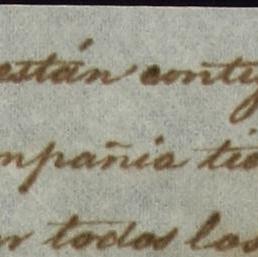 están contig
mpañia tie
n todos los